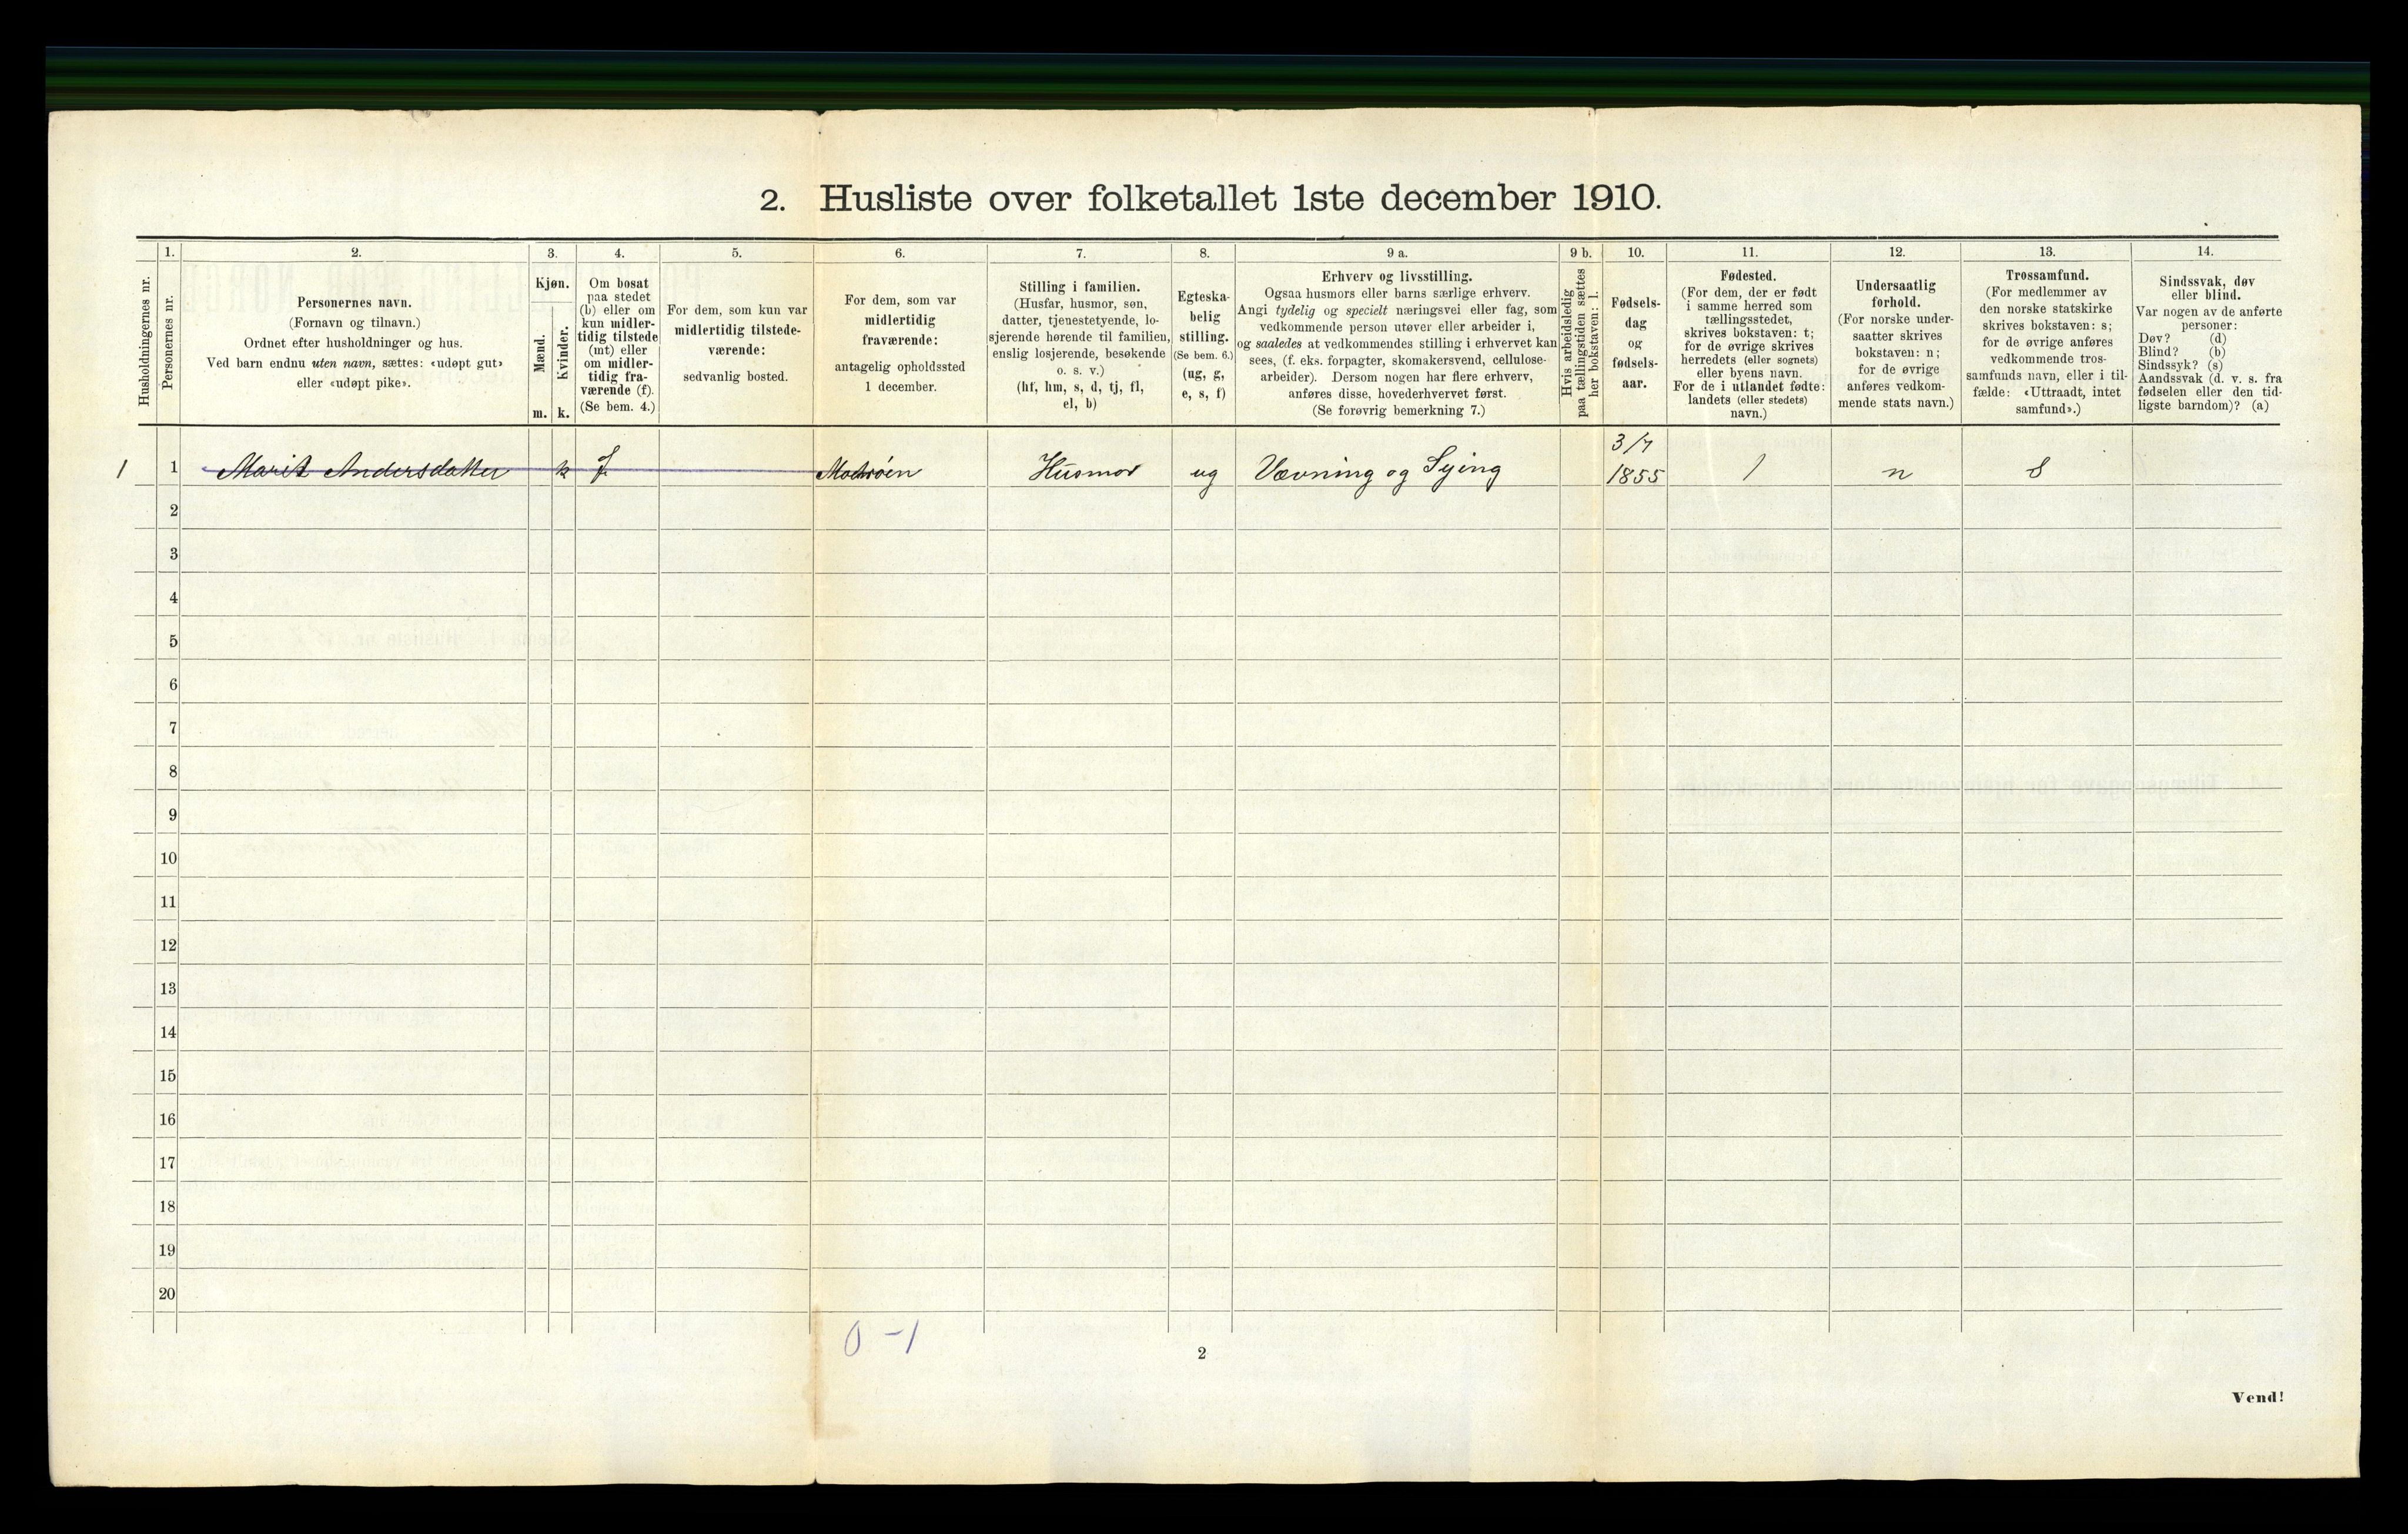 2. Husliste over folketallet 1ste december 1910.
Husholdningernes nr.
1.
Personernes nr.
2.
Personernes navn.
(Fornavn og tilnavn.)
Ordnet efter husholdninger og hus.
Ved barn endnu uten navn, sættes: «udøpt gut»
eller «udøpt pike».
3.
Kjøn.
Mænd.
m.
Kvinder.
k.
4.
Om bosat
paa stedet
(b) eller om
kun midler-
tidig tilstede
(mt) eller
om midler-
tidig fra-
værende (f).
(Se bem. 4.)
5.
For dem, som kun var
midlertidig tilstede-
værende:
sedvanlig bosted.
6.
For dem, som var
midlertidig
fraværende:
antagelig opholdssted
1 december.
7.
Stilling i familien.
(Husfar, husmor, søn,
datter, tjenestetyende, lo-
sjerende hørende til familien,
enslig losjerende, besøkende
o. s. v.)
(hf, hm, s, d, tj, fl,
el, b)
8.
Egteska-
belig
stilling.
(Se bem. 6.)
(ug, g,
e, s, f)
9 a.
Erhverv og livsstilling.
Ogsaa husmors eller barns særlige erhverv.
Angi tydelig og specielt næringsvei eller fag, som
vedkommende person utøver eller arbeider i,
og saaledes at vedkommendes stilling i erhvervet kan
sees, (f. eks. forpagter, skomakersvend, cellulose-
arbeider). Dersom nogen har flere erhverv,
anføres disse, hovederhvervet først.
(Se forøvrig bemerkning 7.)
9 b.
Hvis arbeidsledig
paa tællingstiden sættes
her bokstaven: l.
10.
Fødsels-
dag
og
fødsels-
aar.
11.
Fødested.
(For dem, der er født
i samme herred som
tællingsstedet,
skrives bokstaven: t;
for de øvrige skrives
herredets (eller sognets)
eller byens navn.
For de i utlandet fødte:
landets (eller stedets)
navn.)
12.
Undersaatlig
forhold.
(For norske under-
saatter skrives
bokstaven: n;
for de øvrige
anføres vedkom-
mende stats navn.)
13.
Trossamfund.
(For medlemmer av
den norske statskirke
skrives bokstaven: s;
for de øvrige anføres
vedkommende tros-
samfunds navn, eller i til-
fælde: «Uttraadt, intet
samfund».)
14.
Sindssvak, døv
eller blind.
Var nogen av de anførte
personer:
Døv? (d)
Blind? (b)
Sindssyk? (s)
Aandssvak (d. v. s. fra
fødselen eller den tid-
ligste barndom)? (a)
1 1 Marit Andersdatter k f Husmor ug Vævning og Sying 3/7 1855 n s
2
3
4
5
6
7
8
9
10
11
12
13
14
15
16
17
18
19
20
0 - 1
2
Vend!